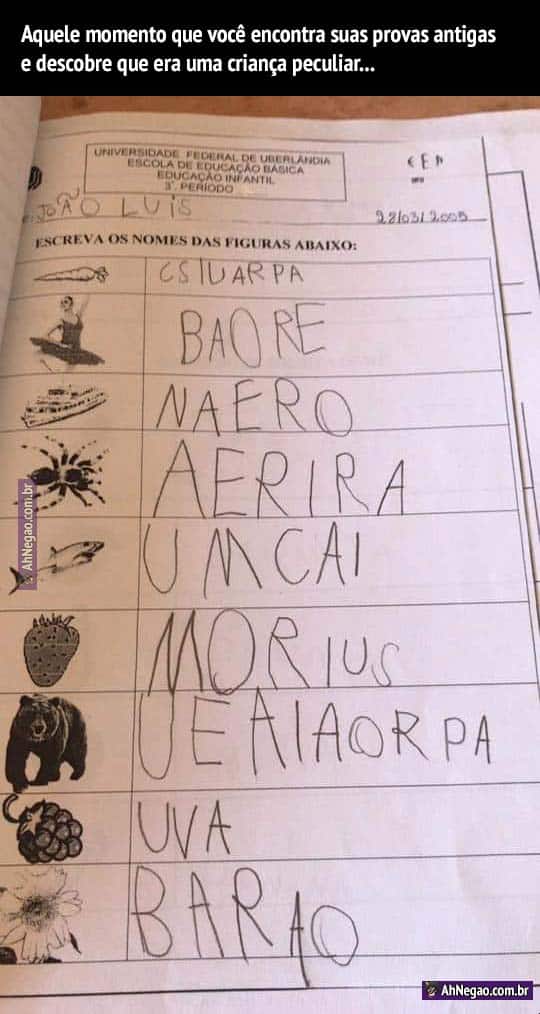 Aquele momento que você encontra suas provas antigas
e descobre que era uma criança peculiar...
UNIVERSIDADE FEDERAL DE UBERLÂNDIA
ESCOLA DE EDUCAÇÃO BÁSICA
EDUCAÇÃO INFANTIL
3º. PERÍODO
JOÃO LUIS
28/03/2005
ESCREVA OS NOMES DAS FIGURAS ABAIXO:
CSIUARPA
BAORE
NAERO
AERIRA
UMCAI
MORIUS
UEAIAORPA
UVA
BARAO
AhNegao.com.br
AhNegao.com.br